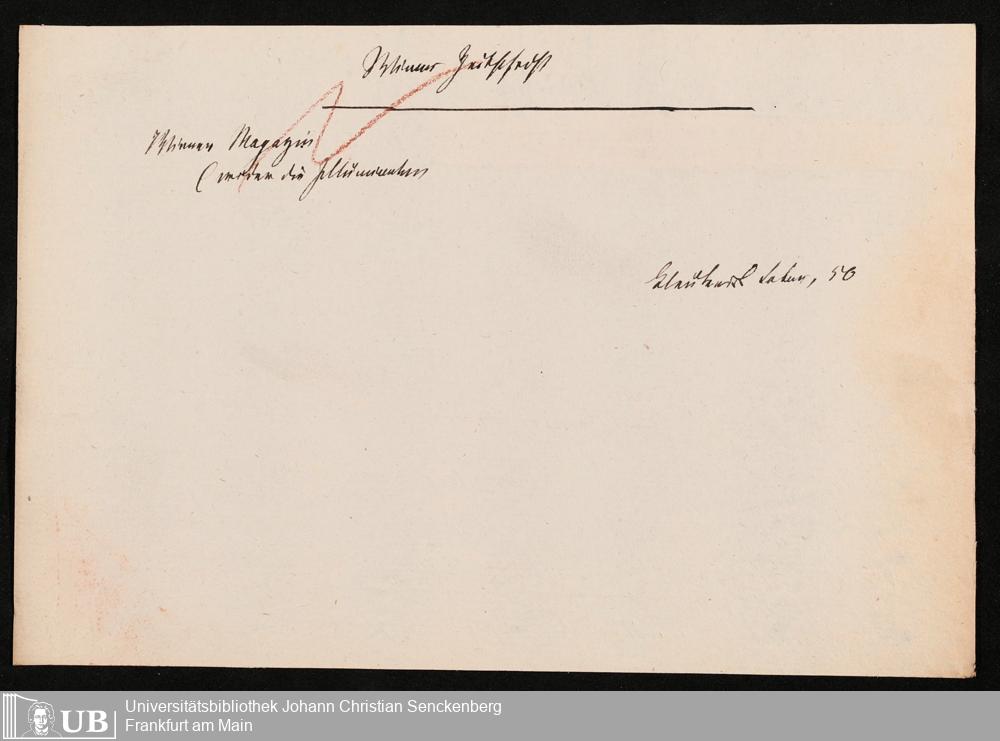 Wiener Zeitschrift
Wiener Magazin
(wider die Illuminaten
50
UB
Universitätsbibliothek Johann Christian Senckenberg
Frankfurt am Main